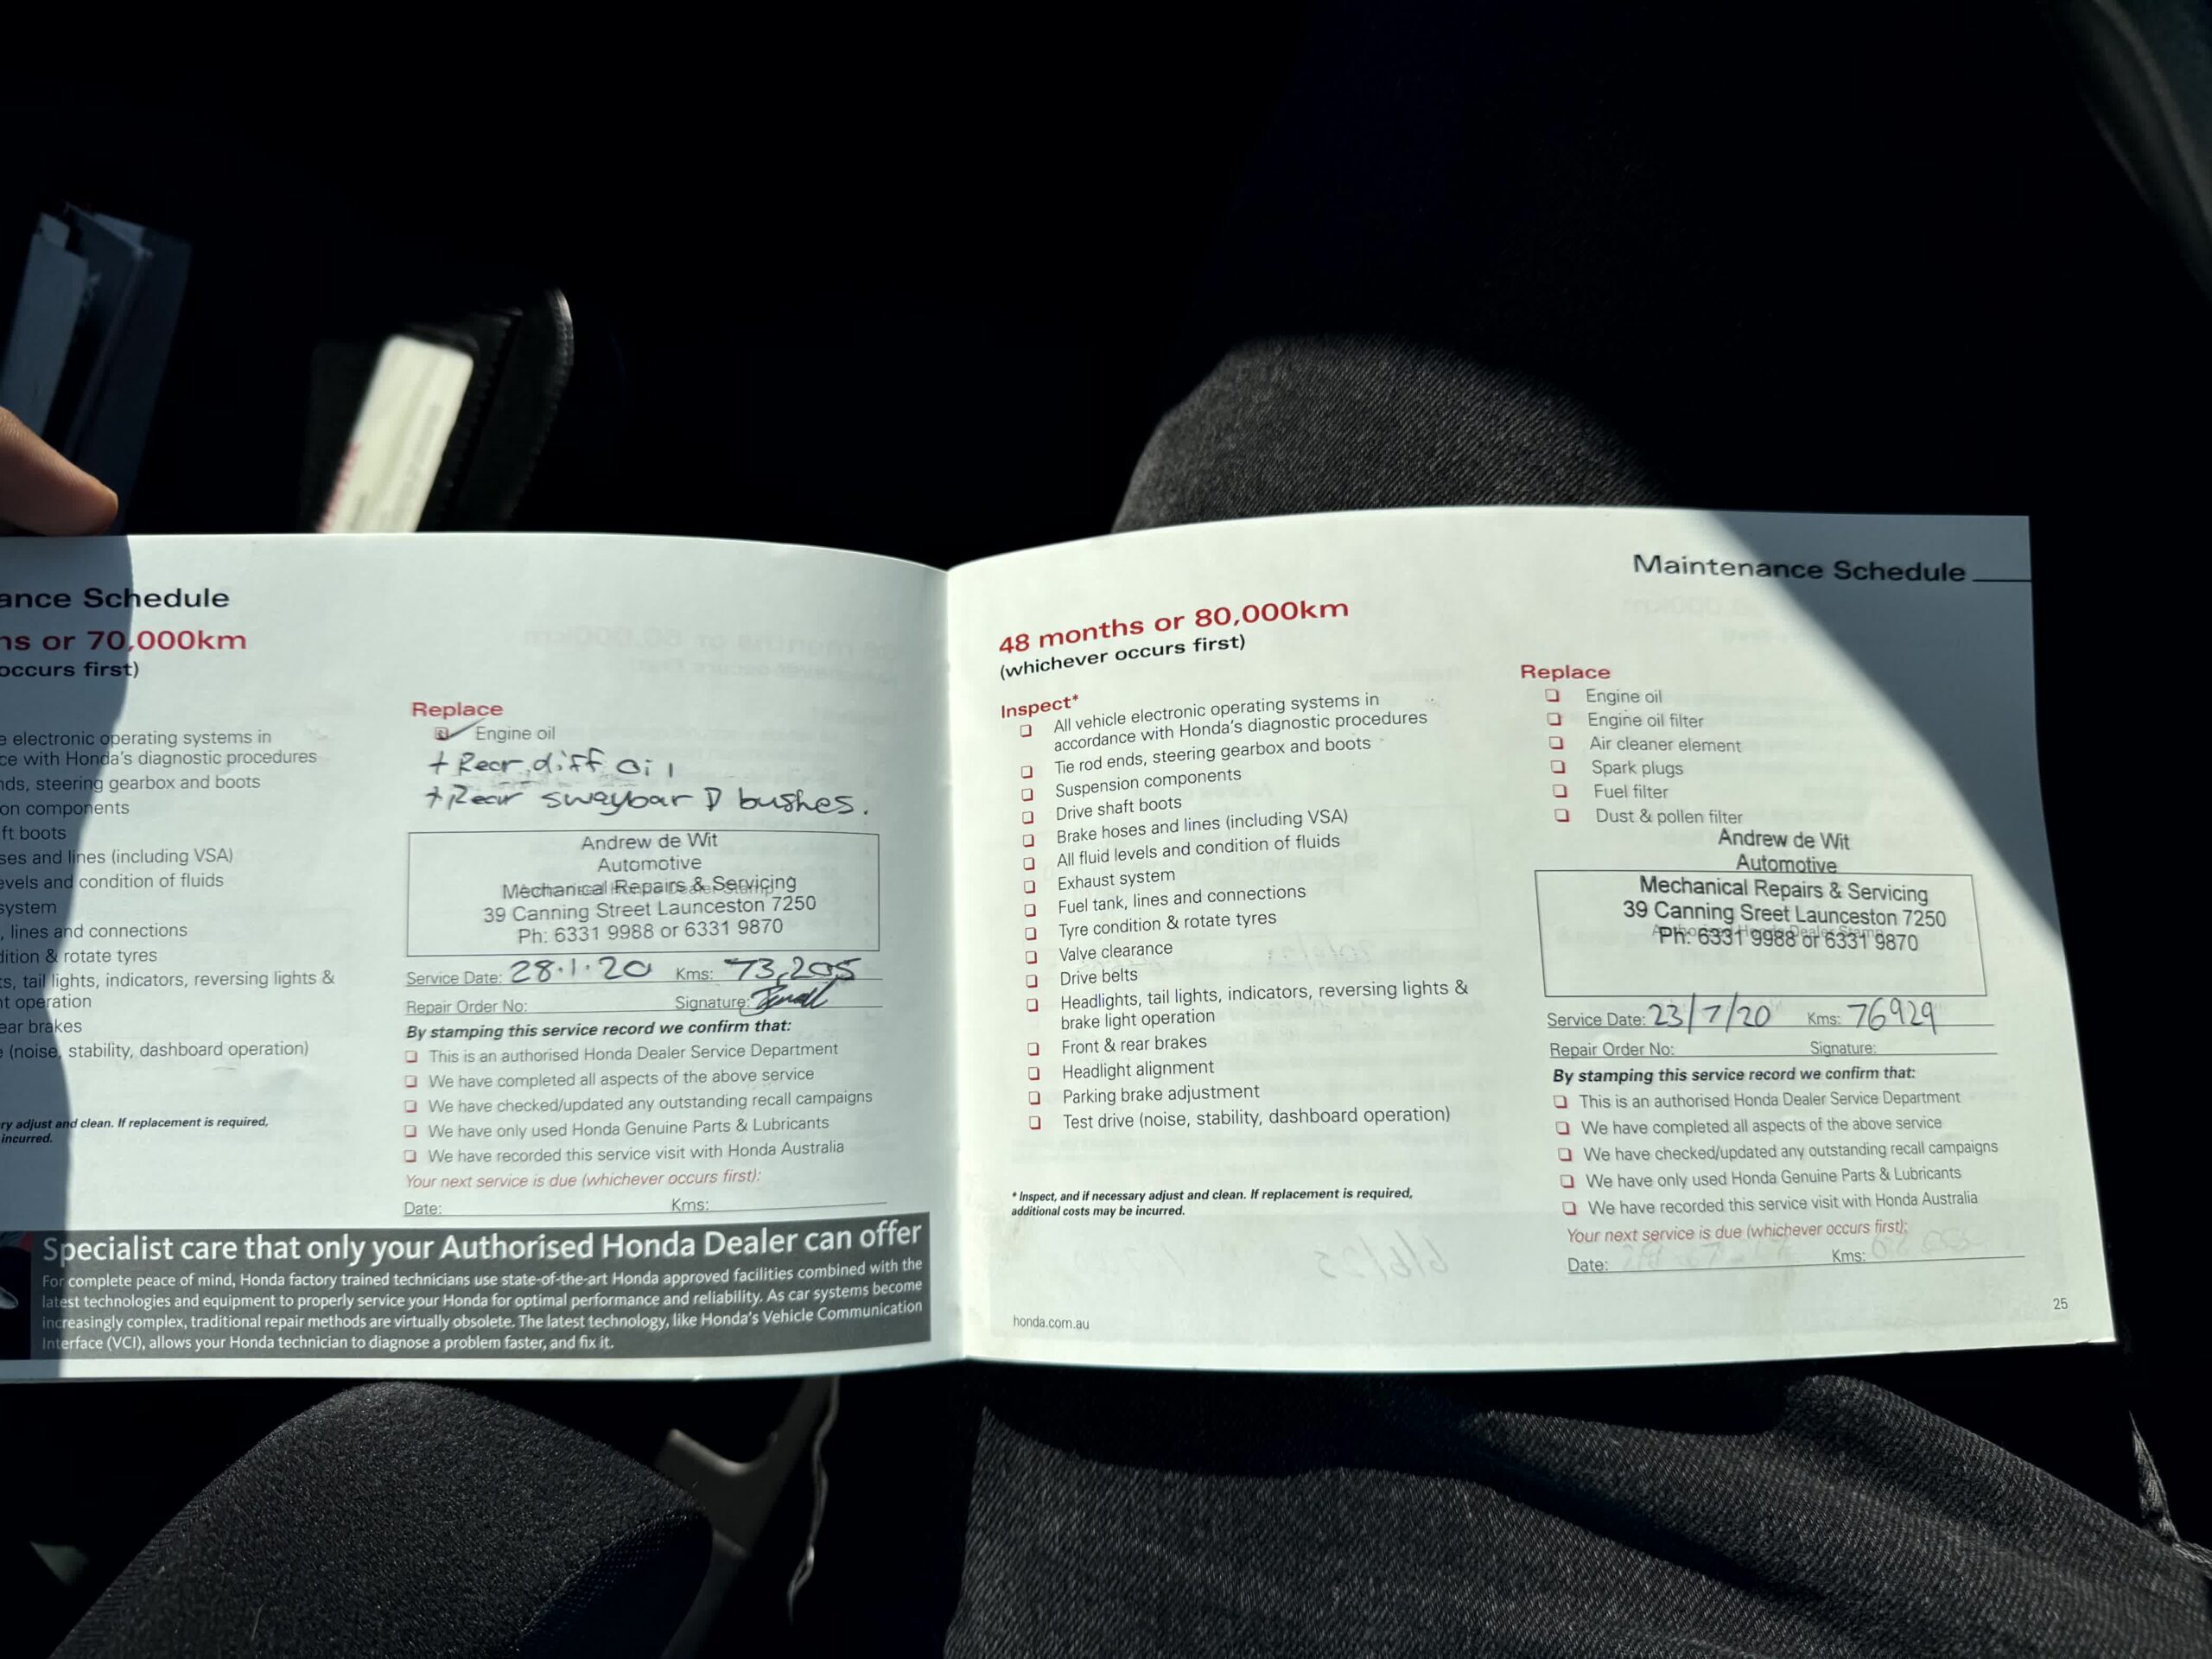 ance Schedule
ns or 70,000km
occurs first)
e electronic operating systems in
ce with Honda's diagnostic procedures
nds, steering gearbox and boots
on components
ft boots
ses and lines (including VSA)
evels and condition of fluids
system
, lines and connections
dition & rotate tyres
ts, tail lights, indicators, reversing lights &
nt operation
ear brakes
e (noise, stability, dashboard operation)
ry adjust and clean. If replacement is required,
incurred.
Replace
Engine oil
+ Rear diff oil
+ Rear swaybar D bushes.
Andrew de Wit
Automotive
Mechanical Repairs & Servicing
39 Canning Street Launceston 7250
Ph: 6331 9988 or 6331 9870
Service Date: 28.1.20 Kms: 73,205
Repair Order No: Signature:
By stamping this service record we confirm that:
This is an authorised Honda Dealer Service Department
We have completed all aspects of the above service
We have checked/updated any outstanding recall campaigns
We have only used Honda Genuine Parts & Lubricants
We have recorded this service visit with Honda Australia
Your next service is due (whichever occurs first):
Date: Kms:
Specialist care that only your Authorised Honda Dealer can offer
For complete peace of mind, Honda factory trained technicians use state-of-the-art Honda approved facilities combined with the
latest technologies and equipment to properly service your Honda for optimal performance and reliability. As car systems become
increasingly complex, traditional repair methods are virtually obsolete. The latest technology, like Honda's Vehicle Communication
Interface (VCI), allows your Honda technician to diagnose a problem faster, and fix it.
Maintenance Schedule
48 months or 80,000km
(whichever occurs first)
Inspect*
All vehicle electronic operating systems in
accordance with Honda's diagnostic procedures
Tie rod ends, steering gearbox and boots
Suspension components
Drive shaft boots
Brake hoses and lines (including VSA)
All fluid levels and condition of fluids
Exhaust system
Fuel tank, lines and connections
Tyre condition & rotate tyres
Valve clearance
Drive belts
Headlights, tail lights, indicators, reversing lights &
brake light operation
Front & rear brakes
Headlight alignment
Parking brake adjustment
Test drive (noise, stability, dashboard operation)
* Inspect, and if necessary adjust and clean. If replacement is required,
additional costs may be incurred.
honda.com.au
Replace
Engine oil
Engine oil filter
Air cleaner element
Spark plugs
Fuel filter
Dust & pollen filter
Andrew de Wit
Automotive
Mechanical Repairs & Servicing
39 Canning Sreet Launceston 7250
Authorised Honda Dealer Stamp
Ph: 6331 9988 or 6331 9870
Service Date: 23/7/20 Kms: 76929
Repair Order No: Signature:
By stamping this service record we confirm that:
This is an authorised Honda Dealer Service Department
We have completed all aspects of the above service
We have checked/updated any outstanding recall campaigns
We have only used Honda Genuine Parts & Lubricants
We have recorded this service visit with Honda Australia
Your next service is due (whichever occurs first):
Date: Kms:
25